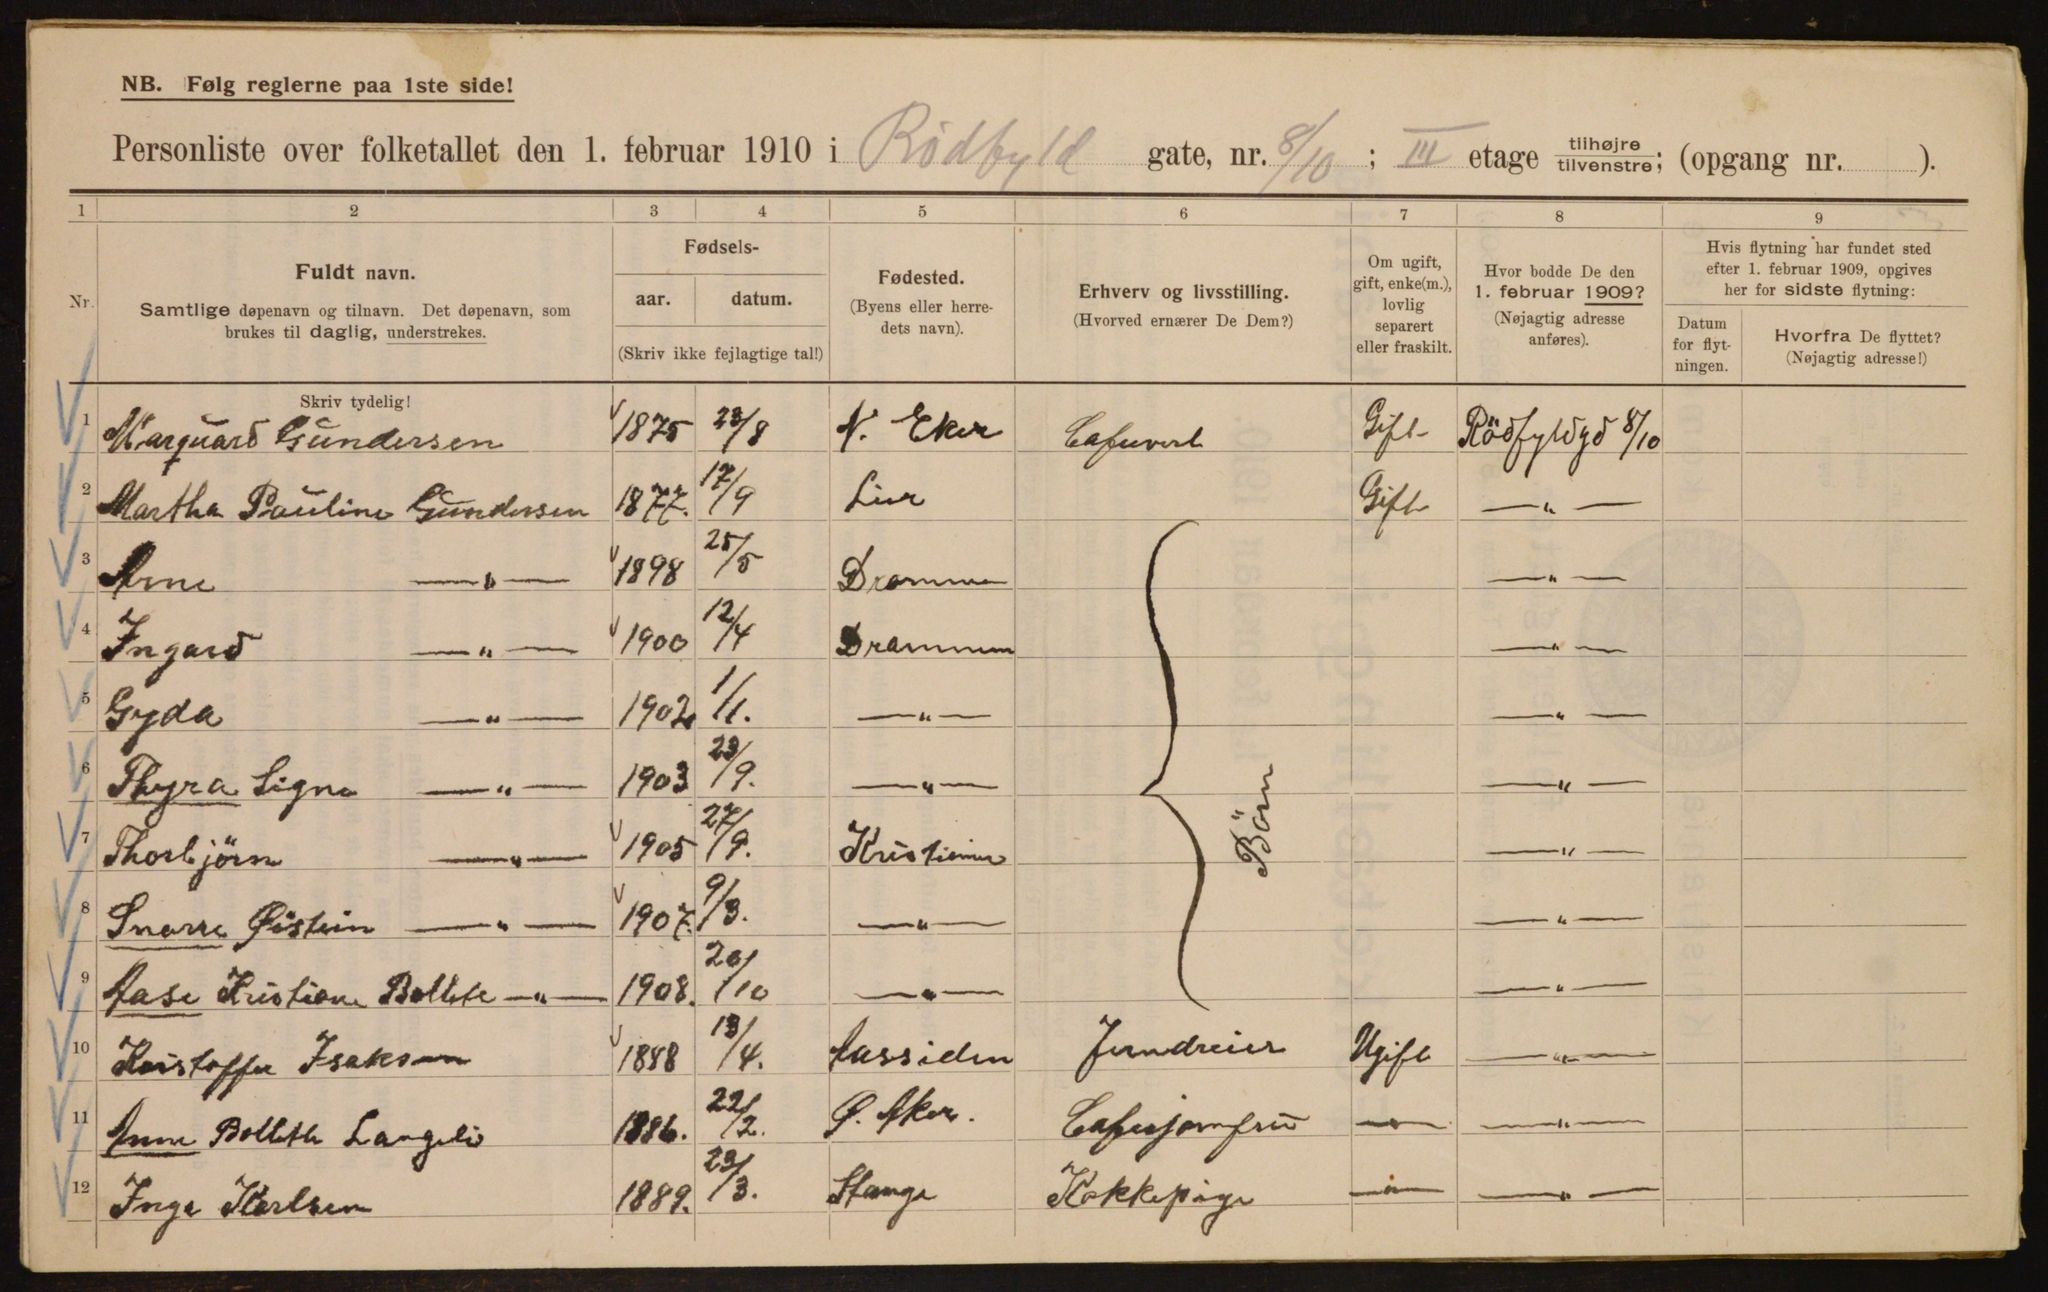 NB. Følg reglerne paa 1ste side!
Personliste over folketallet den 1. februar 1910 i Rødfyld gate, nr. 8/10 ; III etage tilhøjre tilvenstre; (opgang nr. ).
1 2 3 4 5 6 7 8 9
Nr.
Fuldt navn.
Samtlige døpenavn og tilnavn. Det døpenavn, som
brukes til daglig, understrekes.
Skriv tydelig!
Fødsels-
aar. datum.
(Skriv ikke fejlagtige tal!)
Fødested.
(Byens eller herre-
dets navn).
Erhverv og livsstilling.
(Hvorved ernærer De Dem?)
Om ugift,
gift, enke(m.),
lovlig
separert
eller fraskilt.
Hvor bodde De den
1. februar 1909?
(Nøjagtig adresse
anføres).
Hvis flytning har fundet sted
efter 1. februar 1909, opgives
her for sidste flytning:
Datum
for flyt-
ningen.
Hvorfra De flyttet?
(Nøjagtig adresse!)
1 Marquard Gundersen 1875 23/8 N. Eker Cafevert Gift Rödfyldgd 8/10
2 Martha Pauline Gundersen 1877. 17/9 Lier Gift — " —
3 Arne — " — 1898 25/5 Drammen — " —
4 Ingard — " — 1900 12/4 Drammen — " —
5 Gyda — " — 1902 1/1. — " — — " —
6 Thyra Signe — " — 1903 23/9. — " — — " —
Börn
7 Thorbjörn — " — 1905 27/9. Kristiania — " —
8 Snorre Øistein — " — 1907. 9/3. — " — — " —
9 Aase Kristiane Bollete — " — 1908. 20/10 — " — — " —
10 Kristoffer Isaksen 1888 13/4. Aassiden Jerndreier Ugift — " —
11 Anne Bollette Langeli 1886. 22/2. Ø. Aker. Cafejomfru — " — — " —
12 Inga Karlsen 1889. 23/3. Stange Kokkepige — " — — " —